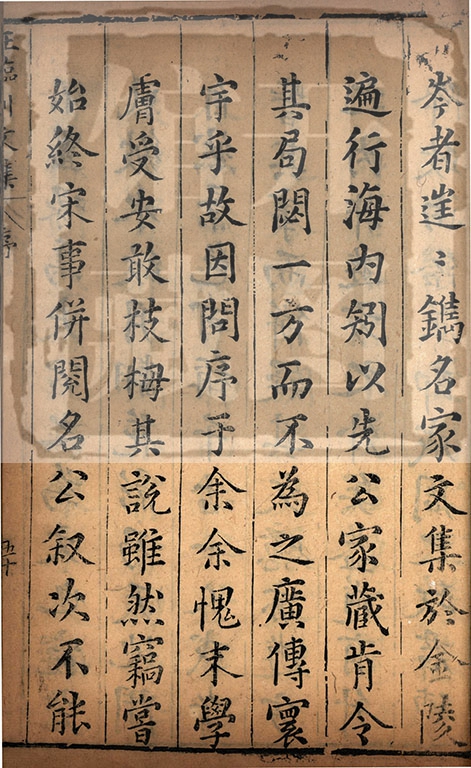 岑者〻鐫名家文集於金陵
遍行海內矧以先公家藏肯令
其局閟一方而不為之廣傳寰
宇乎故因問序于余余愧末學
膚受安敢枝梅其說雖然竊嘗
始終宋事併閱名公叙次不能
王臨川文集 序 五十